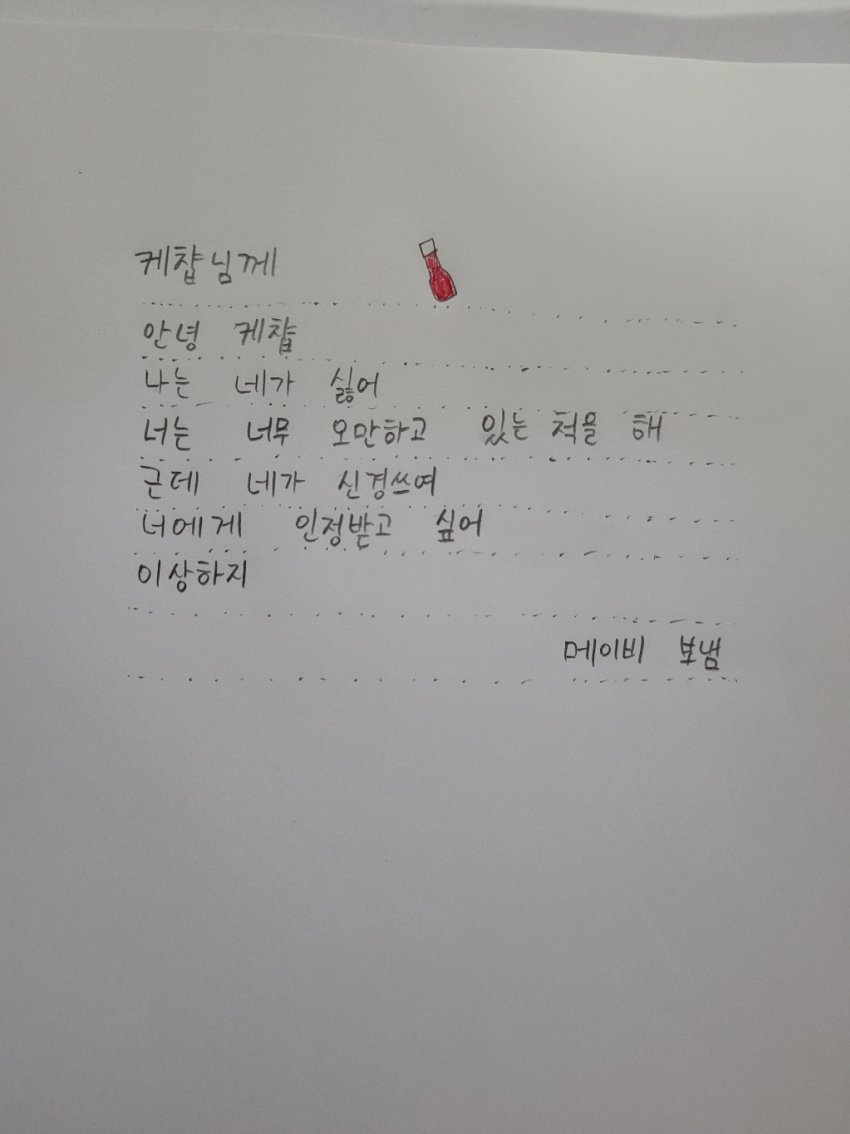 케챱님께
안녕 케챱
나는 네가 싫어
너는 너무 오만하고 있는 척을 해
근데 네가 신경쓰여
너에게 인정받고 싶어
이상하지
메이비 보냄